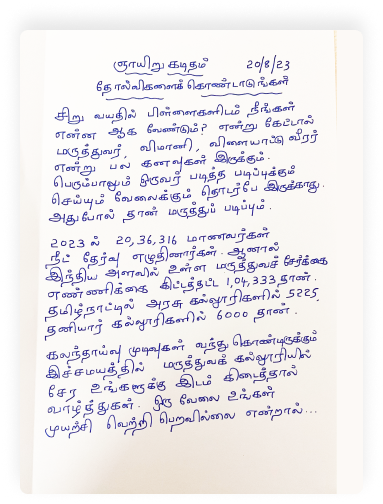 ஞாயிறு கடிதம் 20/8/23
தோல்விகளைக் கொண்டாடுங்கள்
சிறு வயதில் பிள்ளைகளிடம் நீங்கள்
என்ன ஆக வேண்டும்? என்று கேட்டால்
மருத்துவர், விமானி, விளையாட்டு வீரர்
என்று பல கனவுகள் இருக்கும்.
பெரும்பாலும் ஒருவர் படித்த படிப்புக்கும்
செய்யும் வேலைக்கும் தொடர்பே இருக்காது.
அதுபோல் தான் மருத்துப் படிப்பும்.
2023 ல் 20,36,316 மாணவர்கள்
நீட் தேர்வு எழுதினார்கள். ஆனால்
இந்திய அளவில் உள்ள மருத்துவச் சேர்க்கை
எண்ணிக்கை கிட்டத்தட்ட 1,04,333 தான்.
தமிழ்நாட்டில் அரசு கல்லூரிகளில் 5225.
தனியார் கல்லூரிகளில் 6000 தான்.
கலந்தாய்வு முடிவுகள் வந்து கொண்டிருக்கும்
இச்சமயத்தில் மருத்துவக் கல்லூரியில்
சேர உங்களுக்கு இடம் கிடைத்தால்
வாழ்த்துகள். ஒரு வேலை உங்கள்
முயற்சி வெற்றி பெறவில்லை என்றால்...